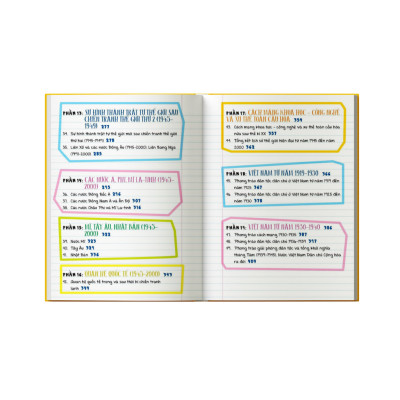 PHẦN 13: SỰ HÌNH THÀNH TRẬT TỰ THẾ GIỚI SAU
CHIẾN TRANH THẾ GIỚI THỨ 2 (1945-
1949) 277
34. Sự hình thành trật tự thế giới mới sau chiến tranh thế giới
thứ hai (1945-1949)
35. Liên Xô và các nước Đông Âu (1945-2000) Liên Bang Nga
(1991-2000) 285
PHẦN 14: CÁC NƯỚC Á, PHI, MĨ LA-TINH (1945-
2000)
36. Các nước Đông Bắc Á
37. Các nước Đông Nam Á và Ấn Độ
38. Các nước Châu Phi và Mĩ La-tinh
PHẦN 15: MĨ, TÂY ÂU, NHẬT BẢN (1945-
2000) 322
39. Nước Mĩ 323
40. Tây Âu
41. Nhật Bản 336
PHẦN 16: QUAN HỆ QUỐC TẾ (1945-2000) 343
42. Quan hệ quốc tế trong và sau thời kì chiến tranh
lạnh 344
PHẦN 17: CÁCH MẠNG KHOA HỌC - CÔNG NGHỆ
VÀ XU THẾ TOÀN CẦU HÓA
43. Cách mạng khoa học - công nghệ và xu thế toàn cầu hóa
nửa sau thế kỉ XX
44. Tổng kết lịch sử thế giới hiện đại từ năm 1945 đến năm
2000
PHẦN 18: VIỆT NAM TỪ NĂM 1919-1930 366
45. Phong trào dân tộc dân chủ ở Việt Nam từ năm 1919 đến
năm 1925 367
46. Phong trào dân tộc dân chủ ở Việt Nam từ năm 1925 đến
năm 1930
PHẦN 19: VIỆT NAM TỪ NĂM 1930-1945 386
47. Phong trào cách mạng 1930-1935 387
48. Phong trào dân tộc, dân chủ 1936-1939
49. Phong trào giải phóng dân tộc và Tổng khởi nghĩa
tháng Tám (1939-1945). Nước Việt Nam Dân chủ Cộng hòa
ra đời